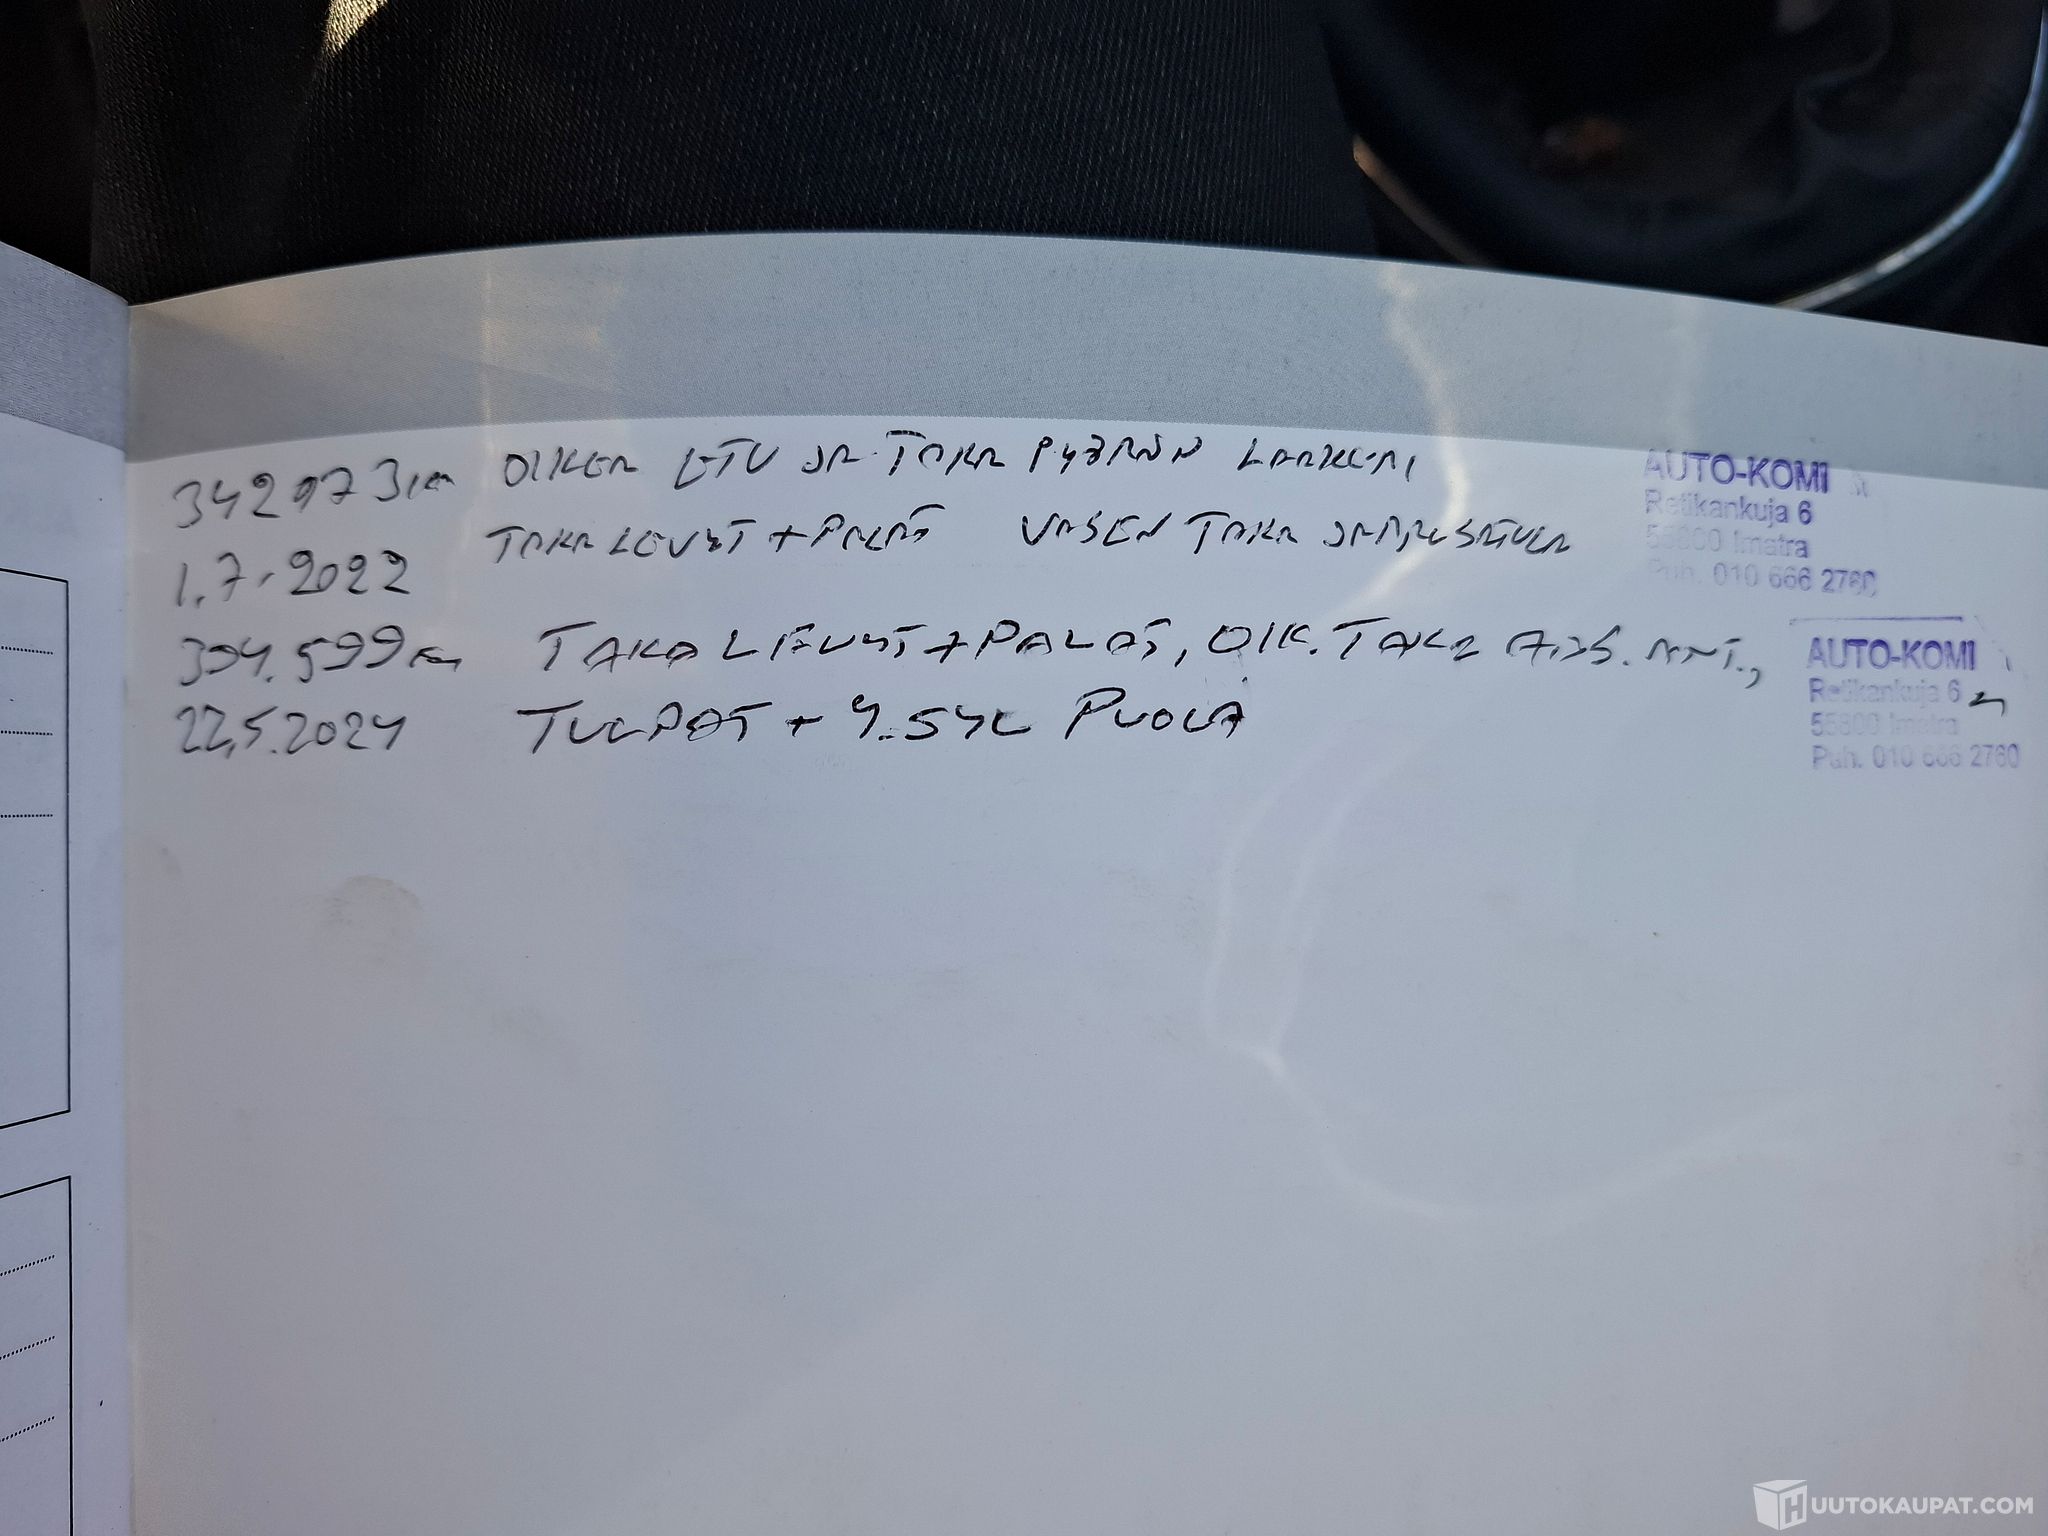 342973km OIKEA ETU JA TAKA PYÖRÄN LAAKERI
1.7.2022 TAKA LEVYT + PALAT VASEN TAKA JARRUSATULA
AUTO-KOMI
Retikankuja 6
55800 Imatra
Puh. 010 666 2760
394.599km TAKA LEVYT + PALAT, OIK. TAKA ABS. ANT.,
22.5.2024 TULPAT + 4. SYL PUOLA
AUTO-KOMI
Retikankuja 6
55800 Imatra
Puh. 010 666 2760
HUUTOKAUPAT.COM